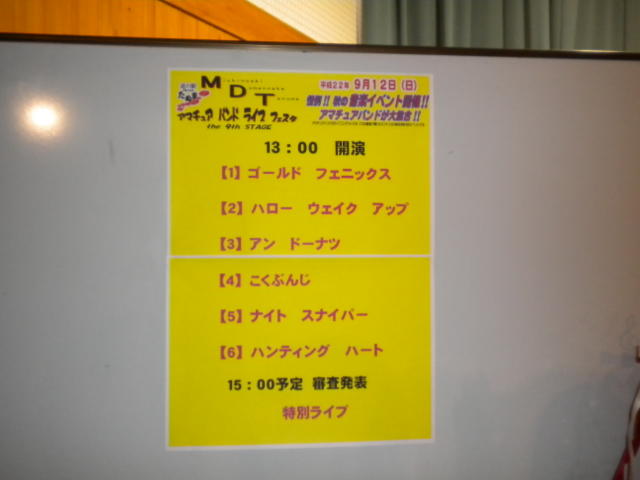 MDT
平成22年 9月12日(日)
恒例!! 秋の音楽イベント開催!!
アマチュアバンドが大集合!!
アマチュア バンド ライブ フェスタ
the 9th STAGE
13:00 開演
【1】ゴールド フェニックス
【2】ハロー ウェイク アップ
【3】アン ドーナツ
【4】こくぶんじ
【5】ナイト スナイパー
【6】ハンティング ハート
15:00予定 審査発表
特別ライブ